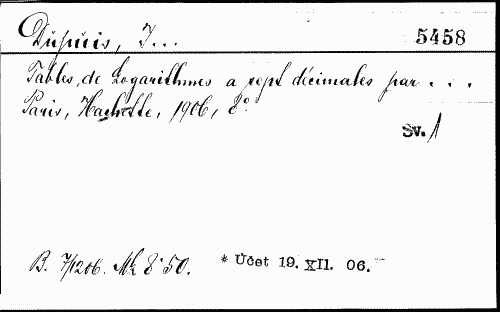 Dupuis, J... 5458
Tables de Logarithmes a sept décimales par . . .
Paris, Hachette, 1906, 8°.
Sv. 1
B. 7/1206. Mk 8·50. * Účet 19. XII. 06.